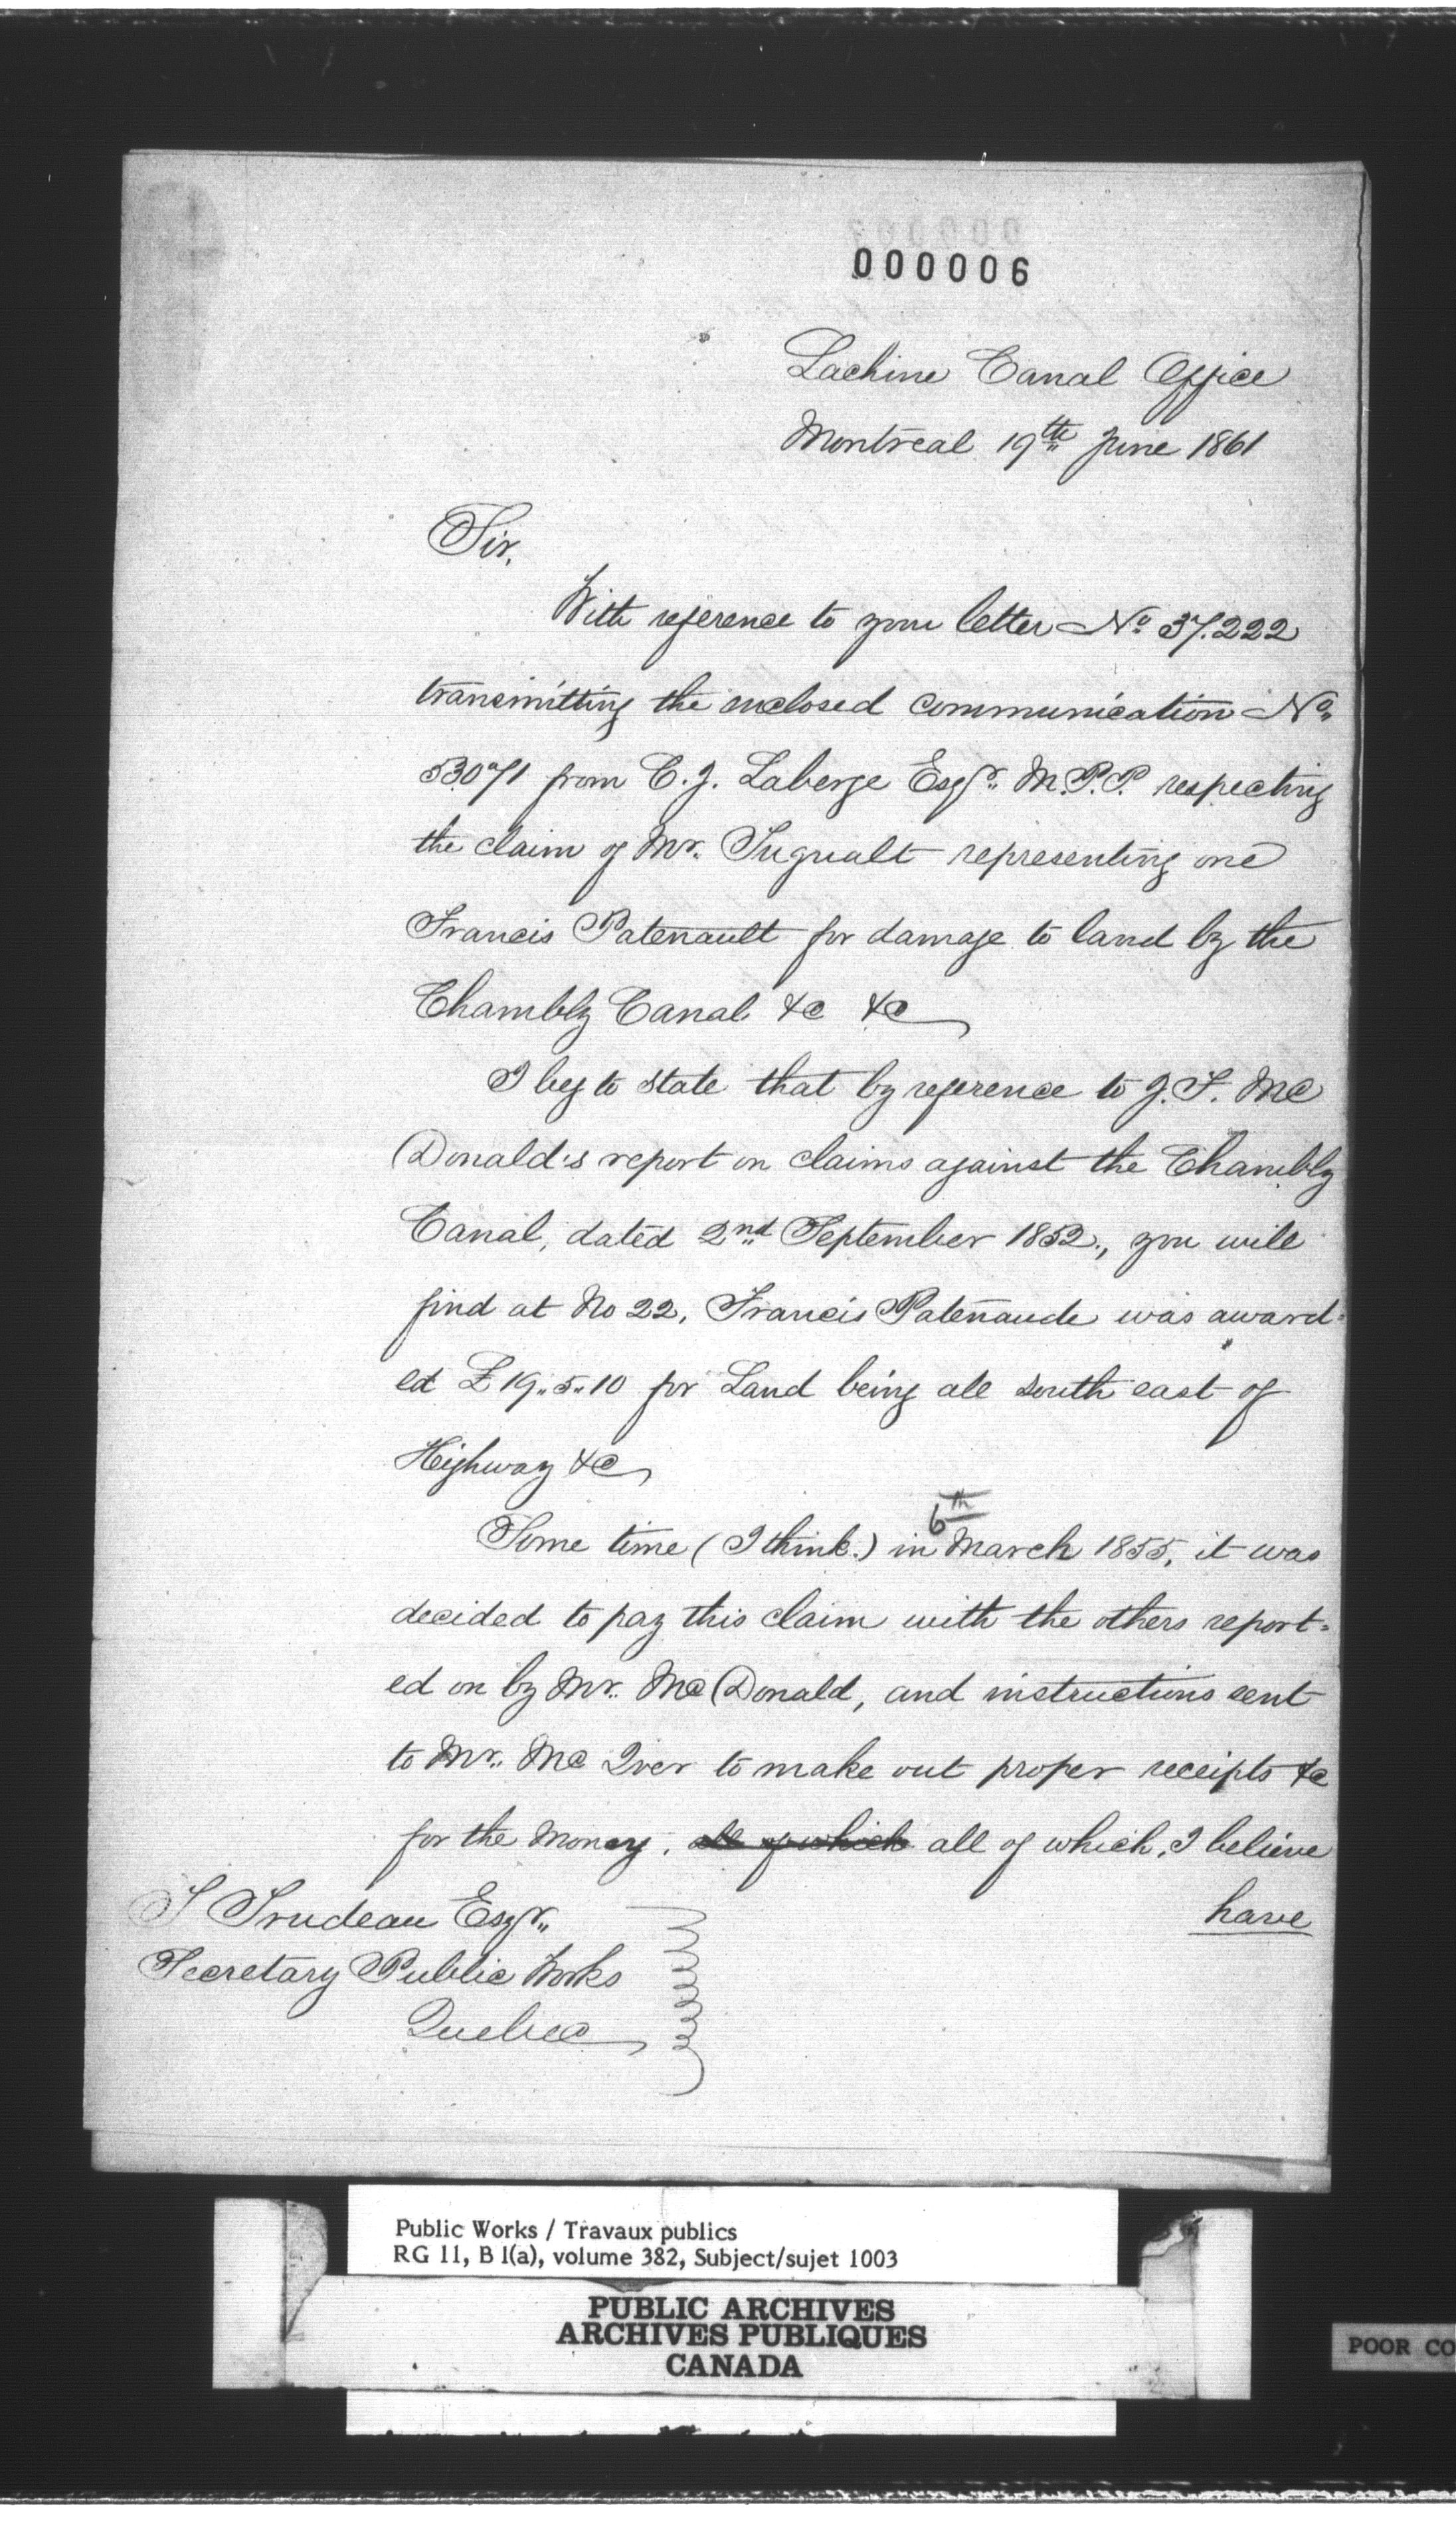 000006
Lachine Canal Office
Montreal 19th June 1861
Sir,
With reference to your letter No 37.222
transmitting the enclosed communication No
53071 from C. J. Laberge Esqr. M.P.P. respecting
the claim of Mr. Tugualt representing one
Francis Patenault for damage to land by the
Chambly Canal &c &c
I beg to state that by reference to J. F. Mc
Donald's report on claims against the Chambly
Canal, dated 2nd September 1852., you will
find at No 22, Francis Patenaude was award=
ed £19..5..10 for Land being all south east of
Highway &c
6th
Some time (I think.) in March 1855, it was
decided to pay this claim with the others report=
ed on by Mr. McDonald, and instructions sent
to Mr. Mc Iver to make out proper receipts &c
for the money, all of which all of which, I believe
have
T Trudeau Esqr.
Secretary Public Works
Quebec
Public Works / Travaux publics
RG 11, B 1(a), volume 382, Subject/sujet 1003
PUBLIC ARCHIVES
ARCHIVES PUBLIQUES
CANADA
POOR CO